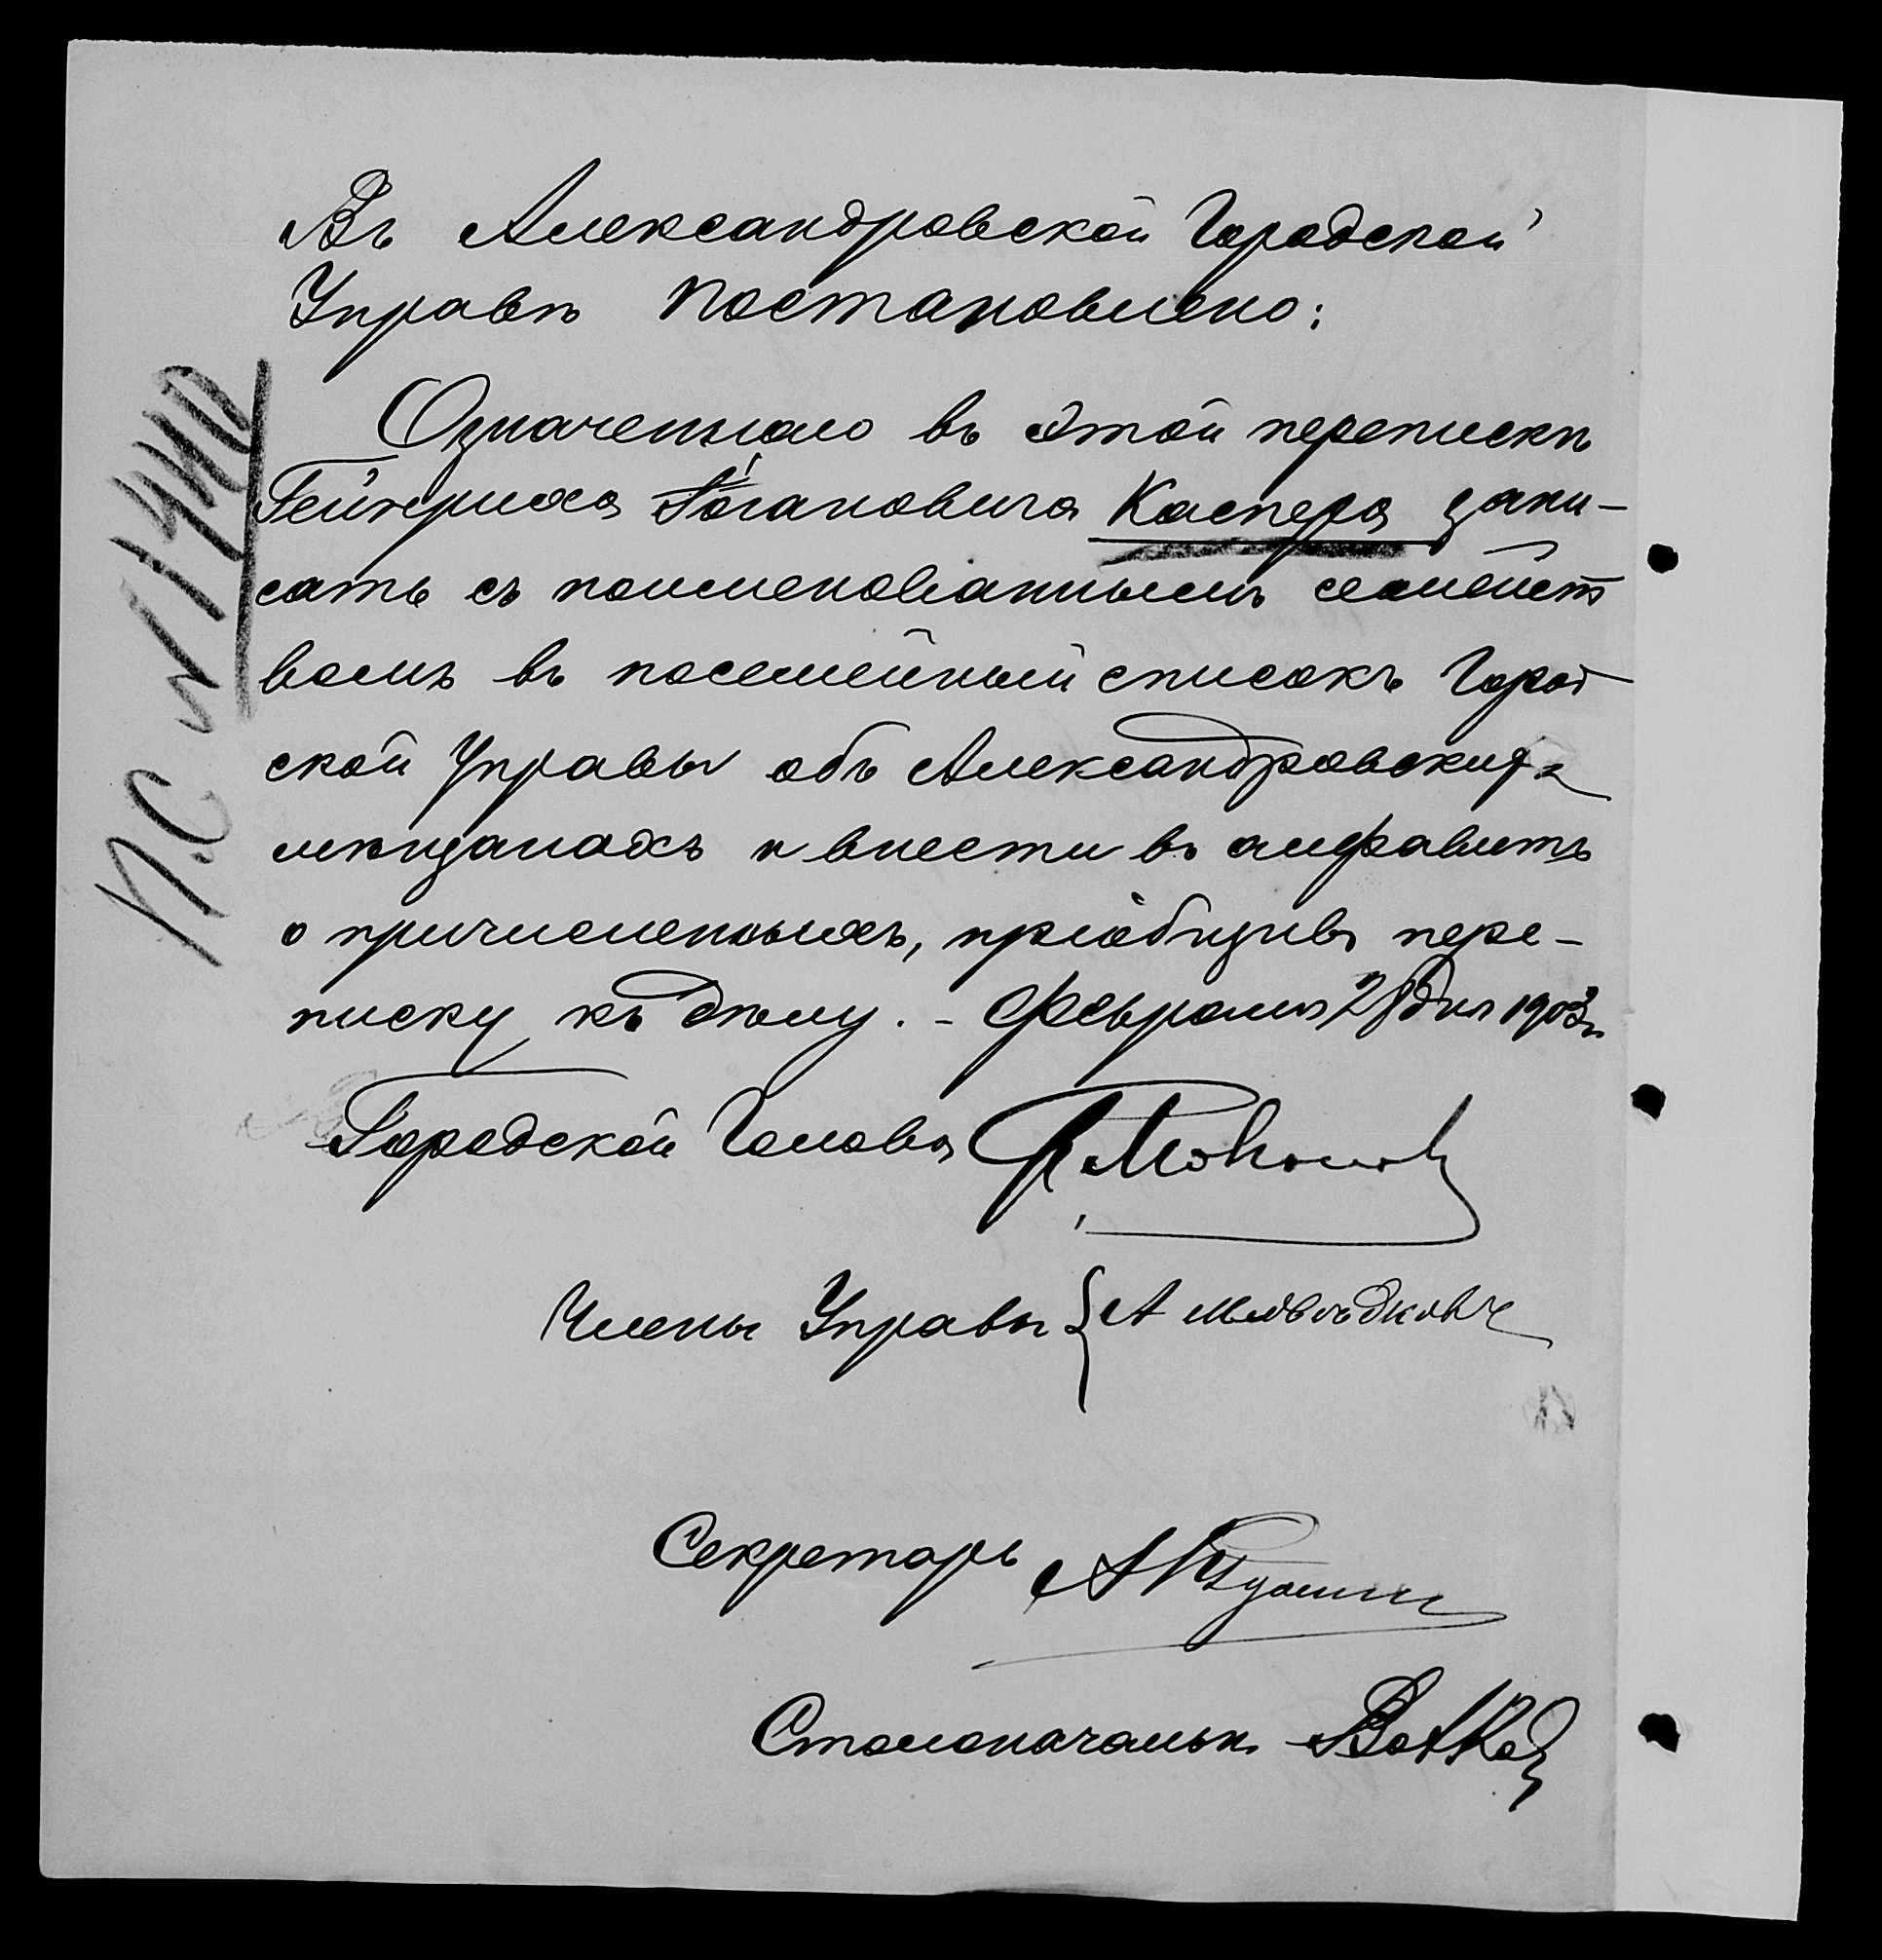 Въ Александровской Городской
Управѣ постановлено:
Означеннаго въ этой перепискѣ
Гейнриха Іоганновича Каспера запи-
сать съ поименованнымъ семейст
вомъ въ посемейный списокъ Город
ской Управы объ Александровскихъ
мѣщанахъ и внести въ алфавитъ
о причисленныхъ, пріобщивъ пере-
писку къ дѣлу. - Февраля дня 1903 г.
Городской Голова
Члены Управы
Секретарь
Столоначальн.
П.С №